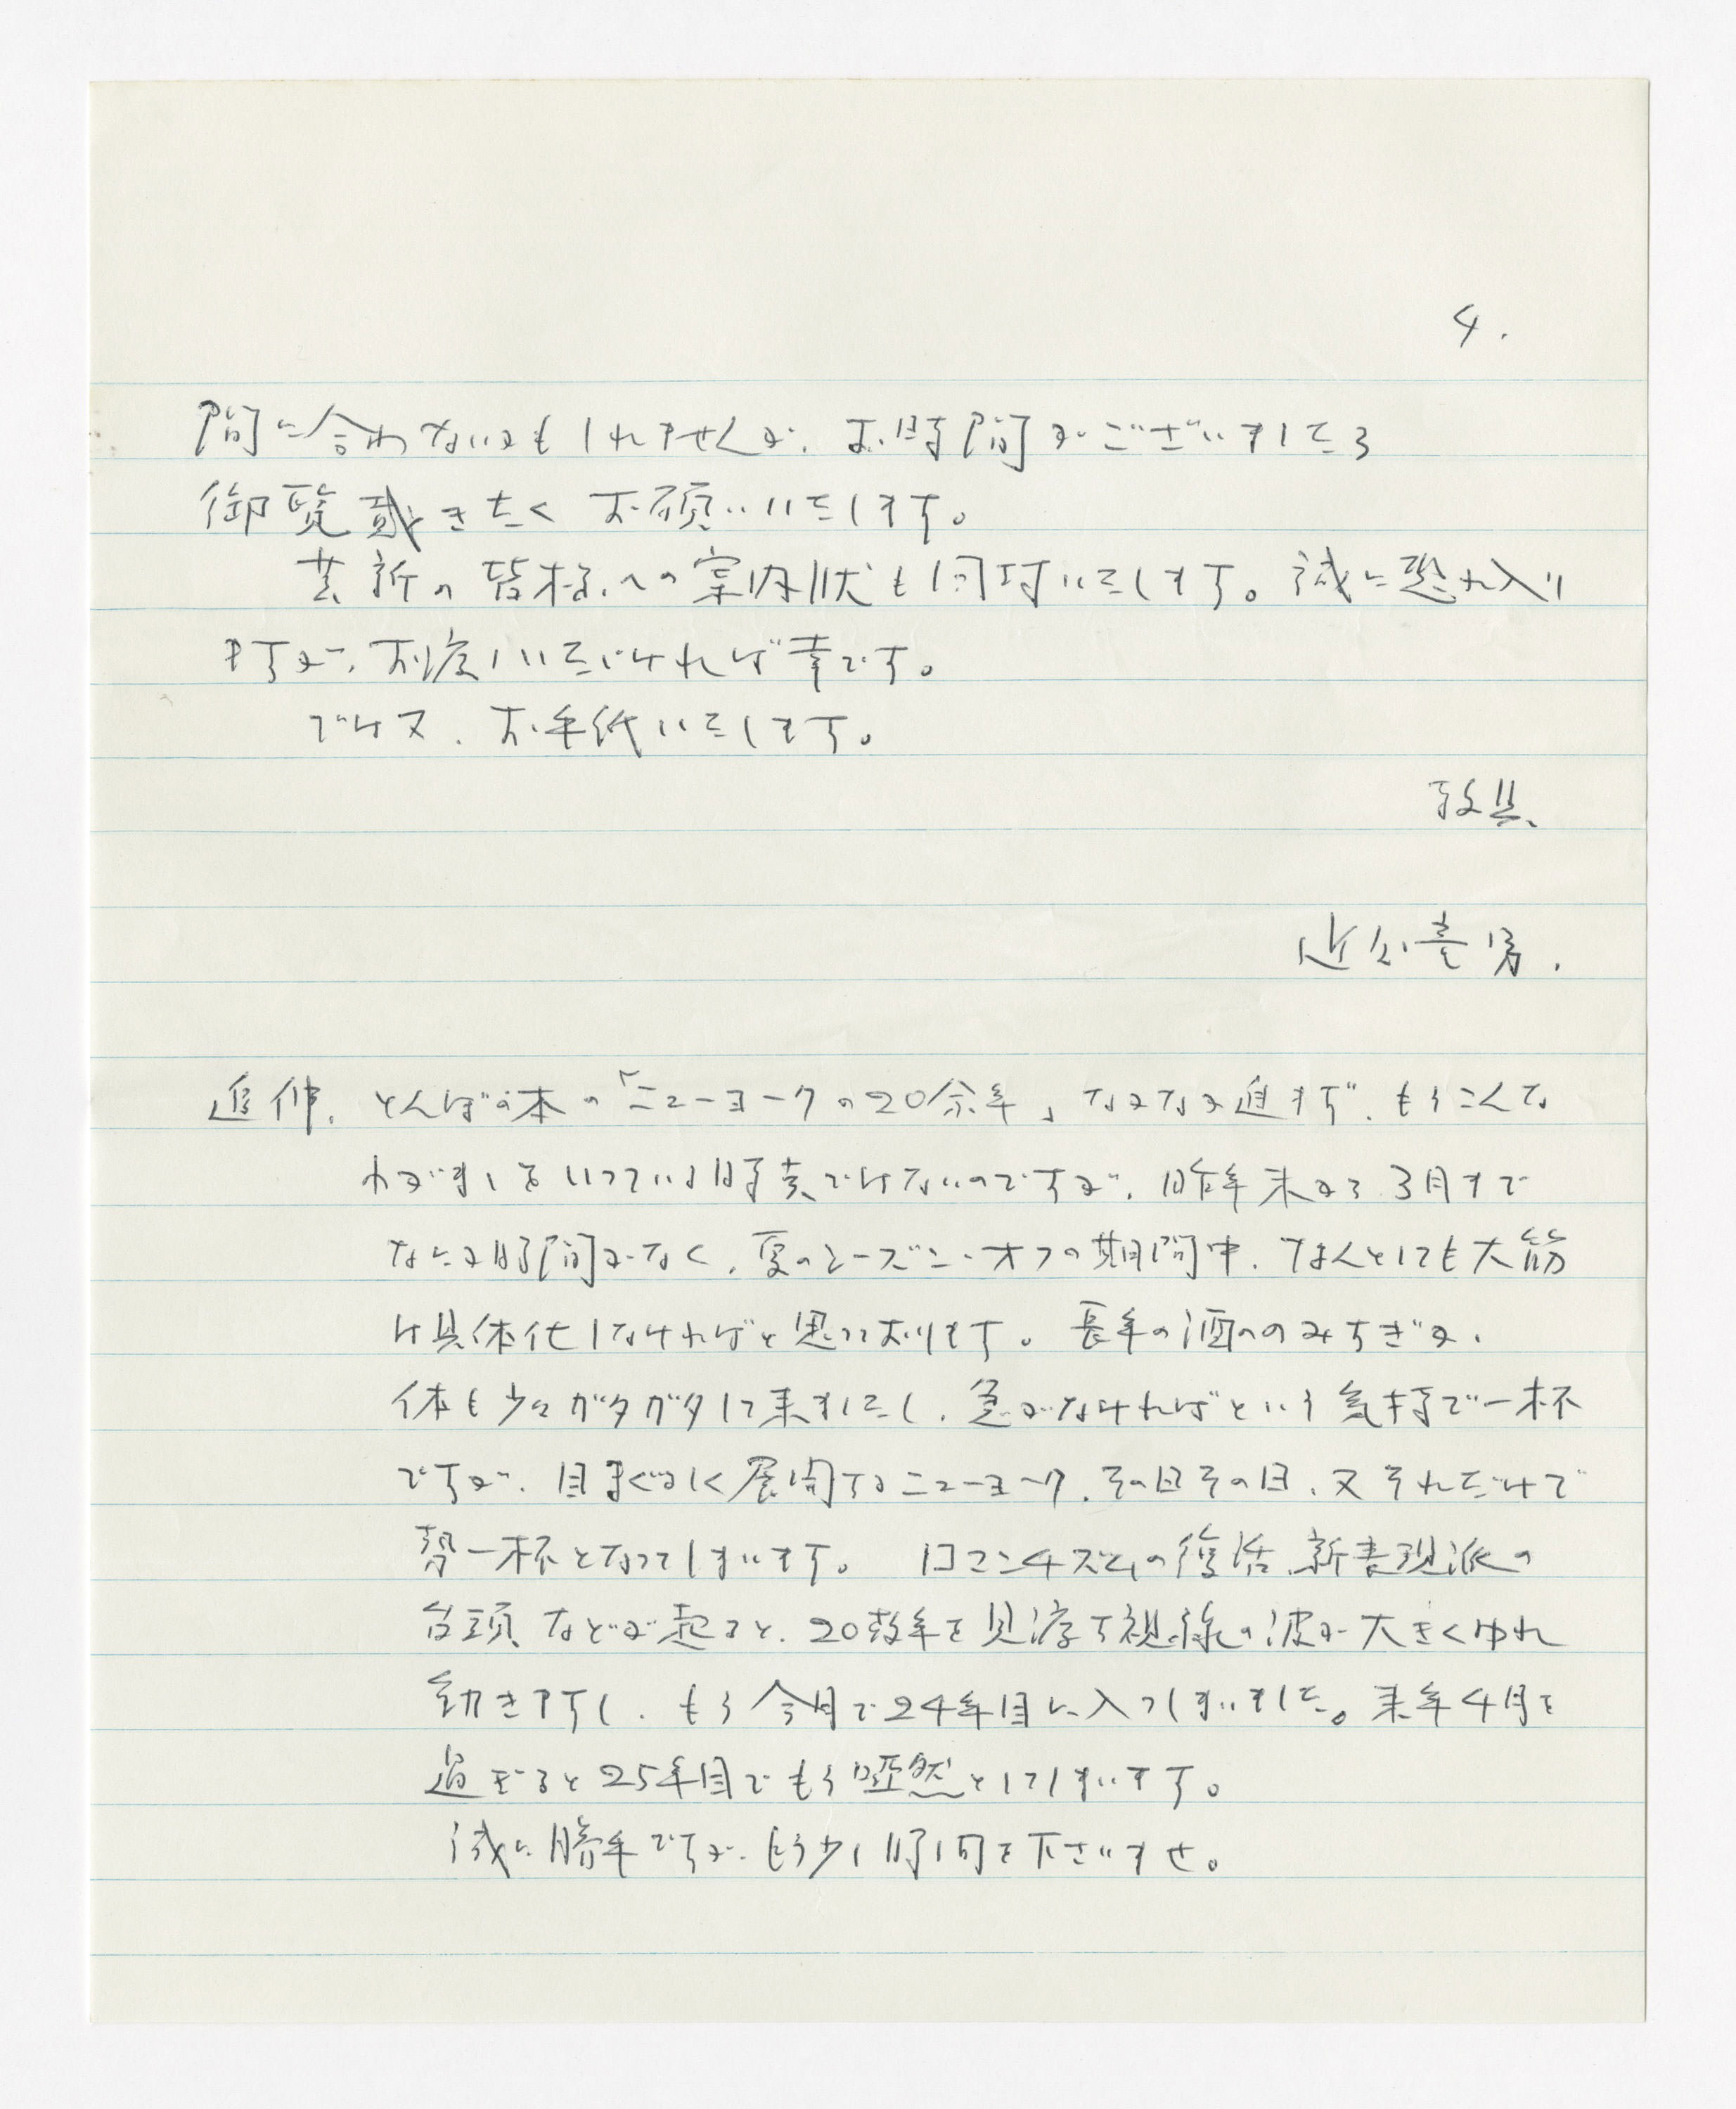 4.
間に合わないかもしれませんが、お時間がございましたら
御覧戴きたく お願いいたします。
芸新の皆様への案内状も同封いたします。誠に恐れ入り
ますが、お渡しいただければ幸です。
では又、お手紙いたします。
敬具、
近藤竜男.
追伸、とんぼの本の「ニューヨークの20余年」なかなか進まず、もうこんな
わがままをいっている時季ではないのですが、昨年末から3月まで
なにか時間がなく、夏のシーズン・オフの期間中、なんとしても大筋
は具体化しなければと思っております。長年の酒ののみすぎか、
体も少々ガタガタして来ましたし、急がなければという気持で一杯
ですが、目まぐるしく展開するニューヨーク、その日その日、又それだけで
勢一杯となってしまいます。 ロマンチズムの復活、新表現派の
台頭などが起ると、20数年を見渡す視線の波が大きくゆれ
動きますし、もう今月で24年目に入ってしまいました。来年4月を
過ぎると25年目でもう啞然としてしまいます。
誠に勝手ですが、もう少し時間を下さいませ。